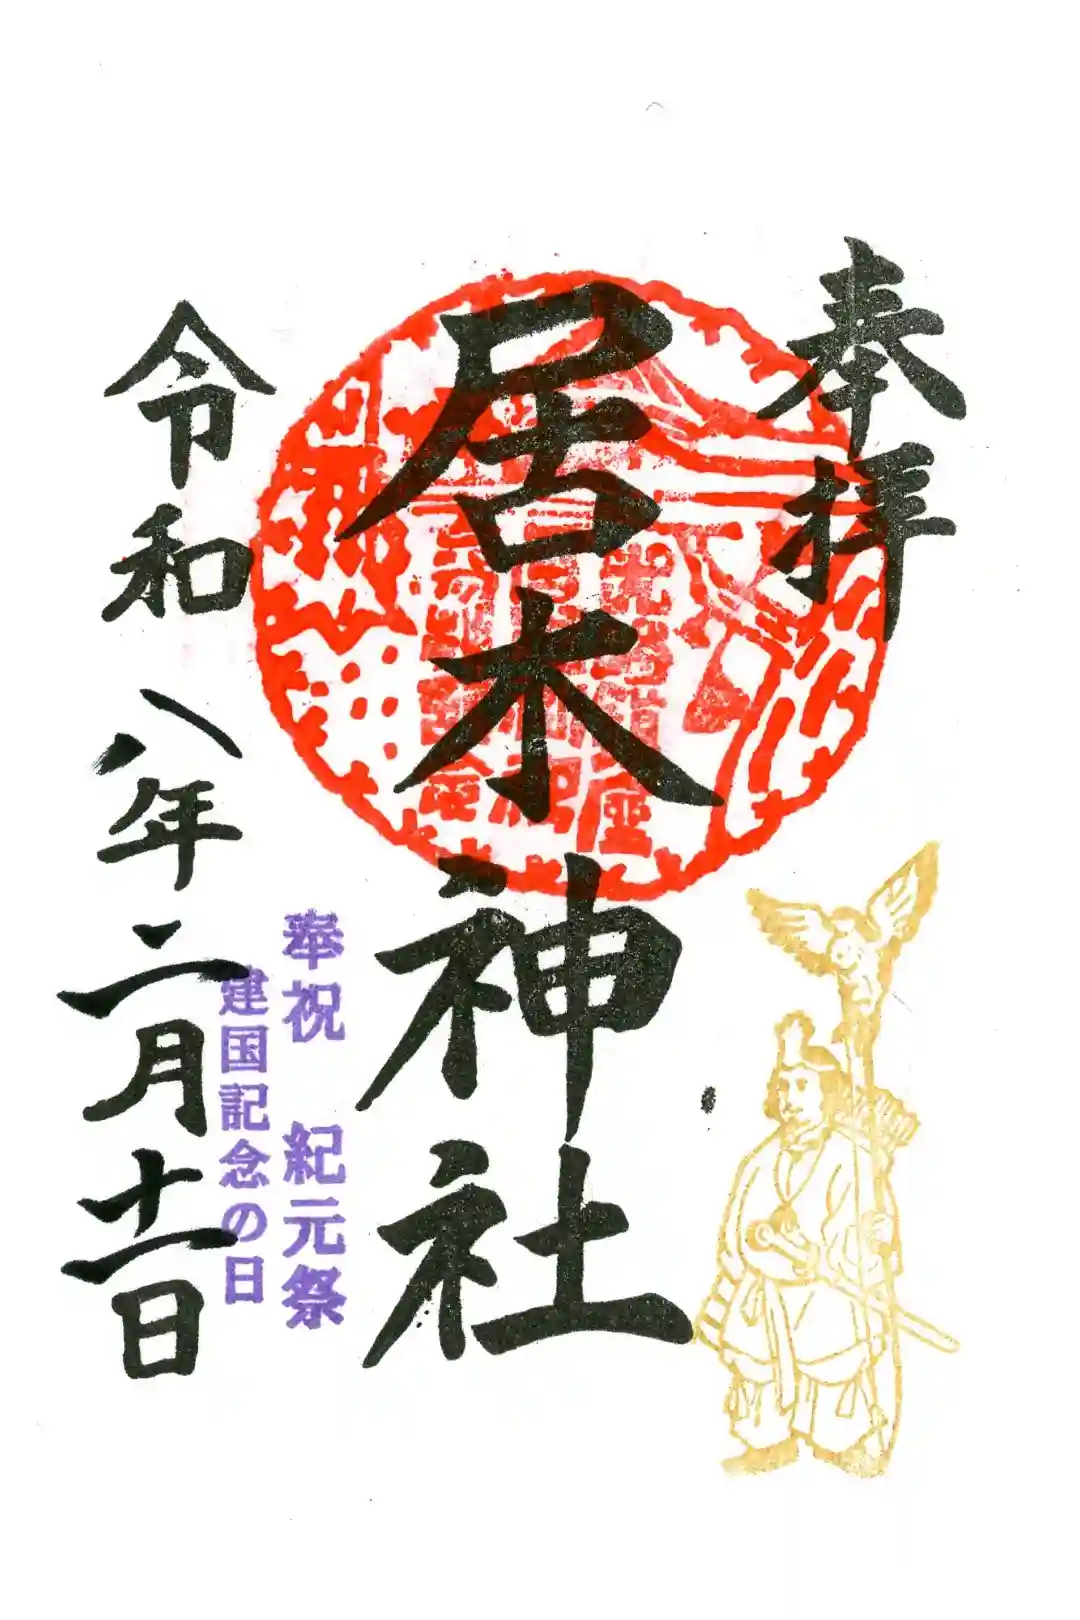 奉拝
居木神社
奉祝 紀元祭
建国記念の日
令和八年二月十一日